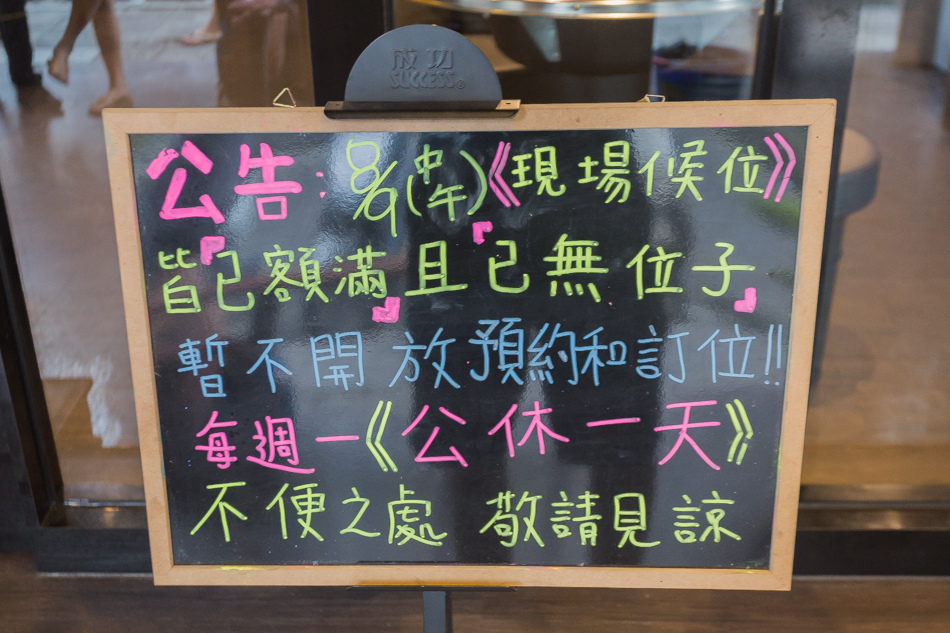 成功
SUCCESS®
公告:8/9(中午)《現場候位》
皆『已額滿』且『已無位子』
暫不開放預約和訂位!!
每週一《公休一天》
不便之處 敬請見諒